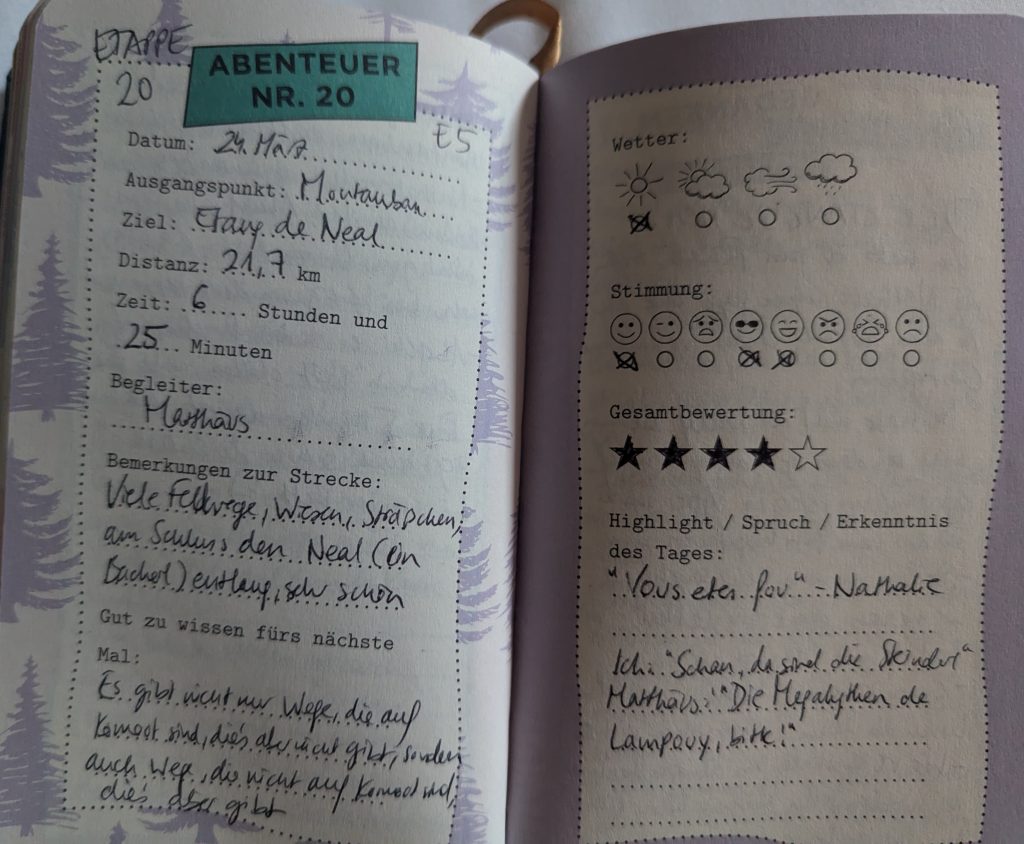 ETAPPE
20
ABENTEUER
NR. 20
E5
Datum: 24. März
Ausgangspunkt: Montauban
Ziel: Etang de Neal
Distanz: 21,7 km
Zeit: 6 Stunden und
25 Minuten
Begleiter:
Matthäus
Bemerkungen zur Strecke:
Viele Feldwege, Wiesen, Sträßchen,
am Schluss den Neal (ein
Bacherl) entlang, sehr schön
Gut zu wissen fürs nächste
Mal:
Es gibt nicht nur Wege, die auf
Komoot sind, die's aber nicht gibt, sondern
auch Wege, die nicht auf Komoot sind,
die's aber gibt
Wetter:
Stimmung:
Gesamtbewertung:
Highlight / Spruch / Erkenntnis
des Tages:
"Vous etes fou" - Nathalie
Ich: "Schau, da sind die Steinderl"
Matthäus: "Die Megalythen de
Lampouy, bitte!"